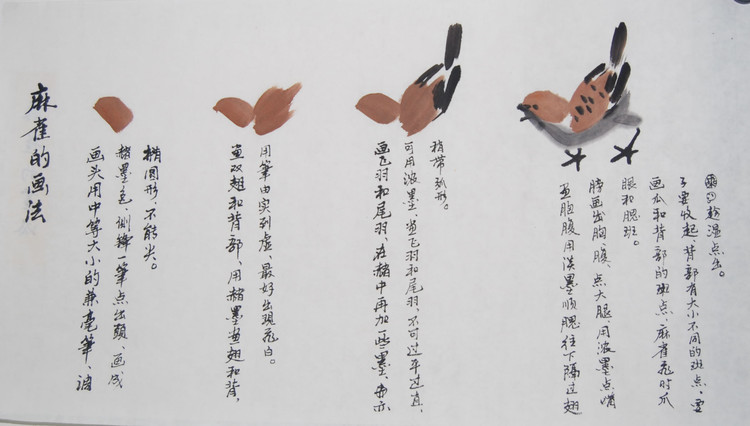 麻雀的画法
画头用中等大小的兼毫筆、调
赭墨色、侧锋一筆点出頭、画成
椭圆形，不能尖。
画双翅和背部，用赭墨画翅和背，
用筆由实到虚，最好出現飛白。
画飞羽和尾羽，在赭中再加一些墨、亦
可用浓墨、画飞羽和尾羽，不可过平过直，
稍带弧形。
画胸腹用淡墨顺腮往下隔过翅
膀画出胸、腹、点大腿、用浓墨点嘴
眼和腮斑。
画爪和背部的斑点，麻雀飛时爪
子要收起，背部有大小不同的斑点，要
趁湿点出。